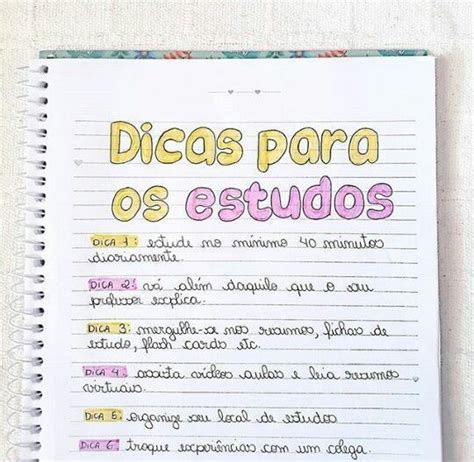 Dicas para
os estudos
DICA 1: estude no mínimo 40 minutos
diariamente.
DICA 2: vá além daquilo que o seu
professor explica.
DICA 3: mergulhe-se nos resumos, fichas de
estudo, flash cards etc.
DICA 4: assista vídeos aulas e leia resumos
virtuais.
DICA 5: organize seu local de estudos
DICA 6: troque experiências com um colega.